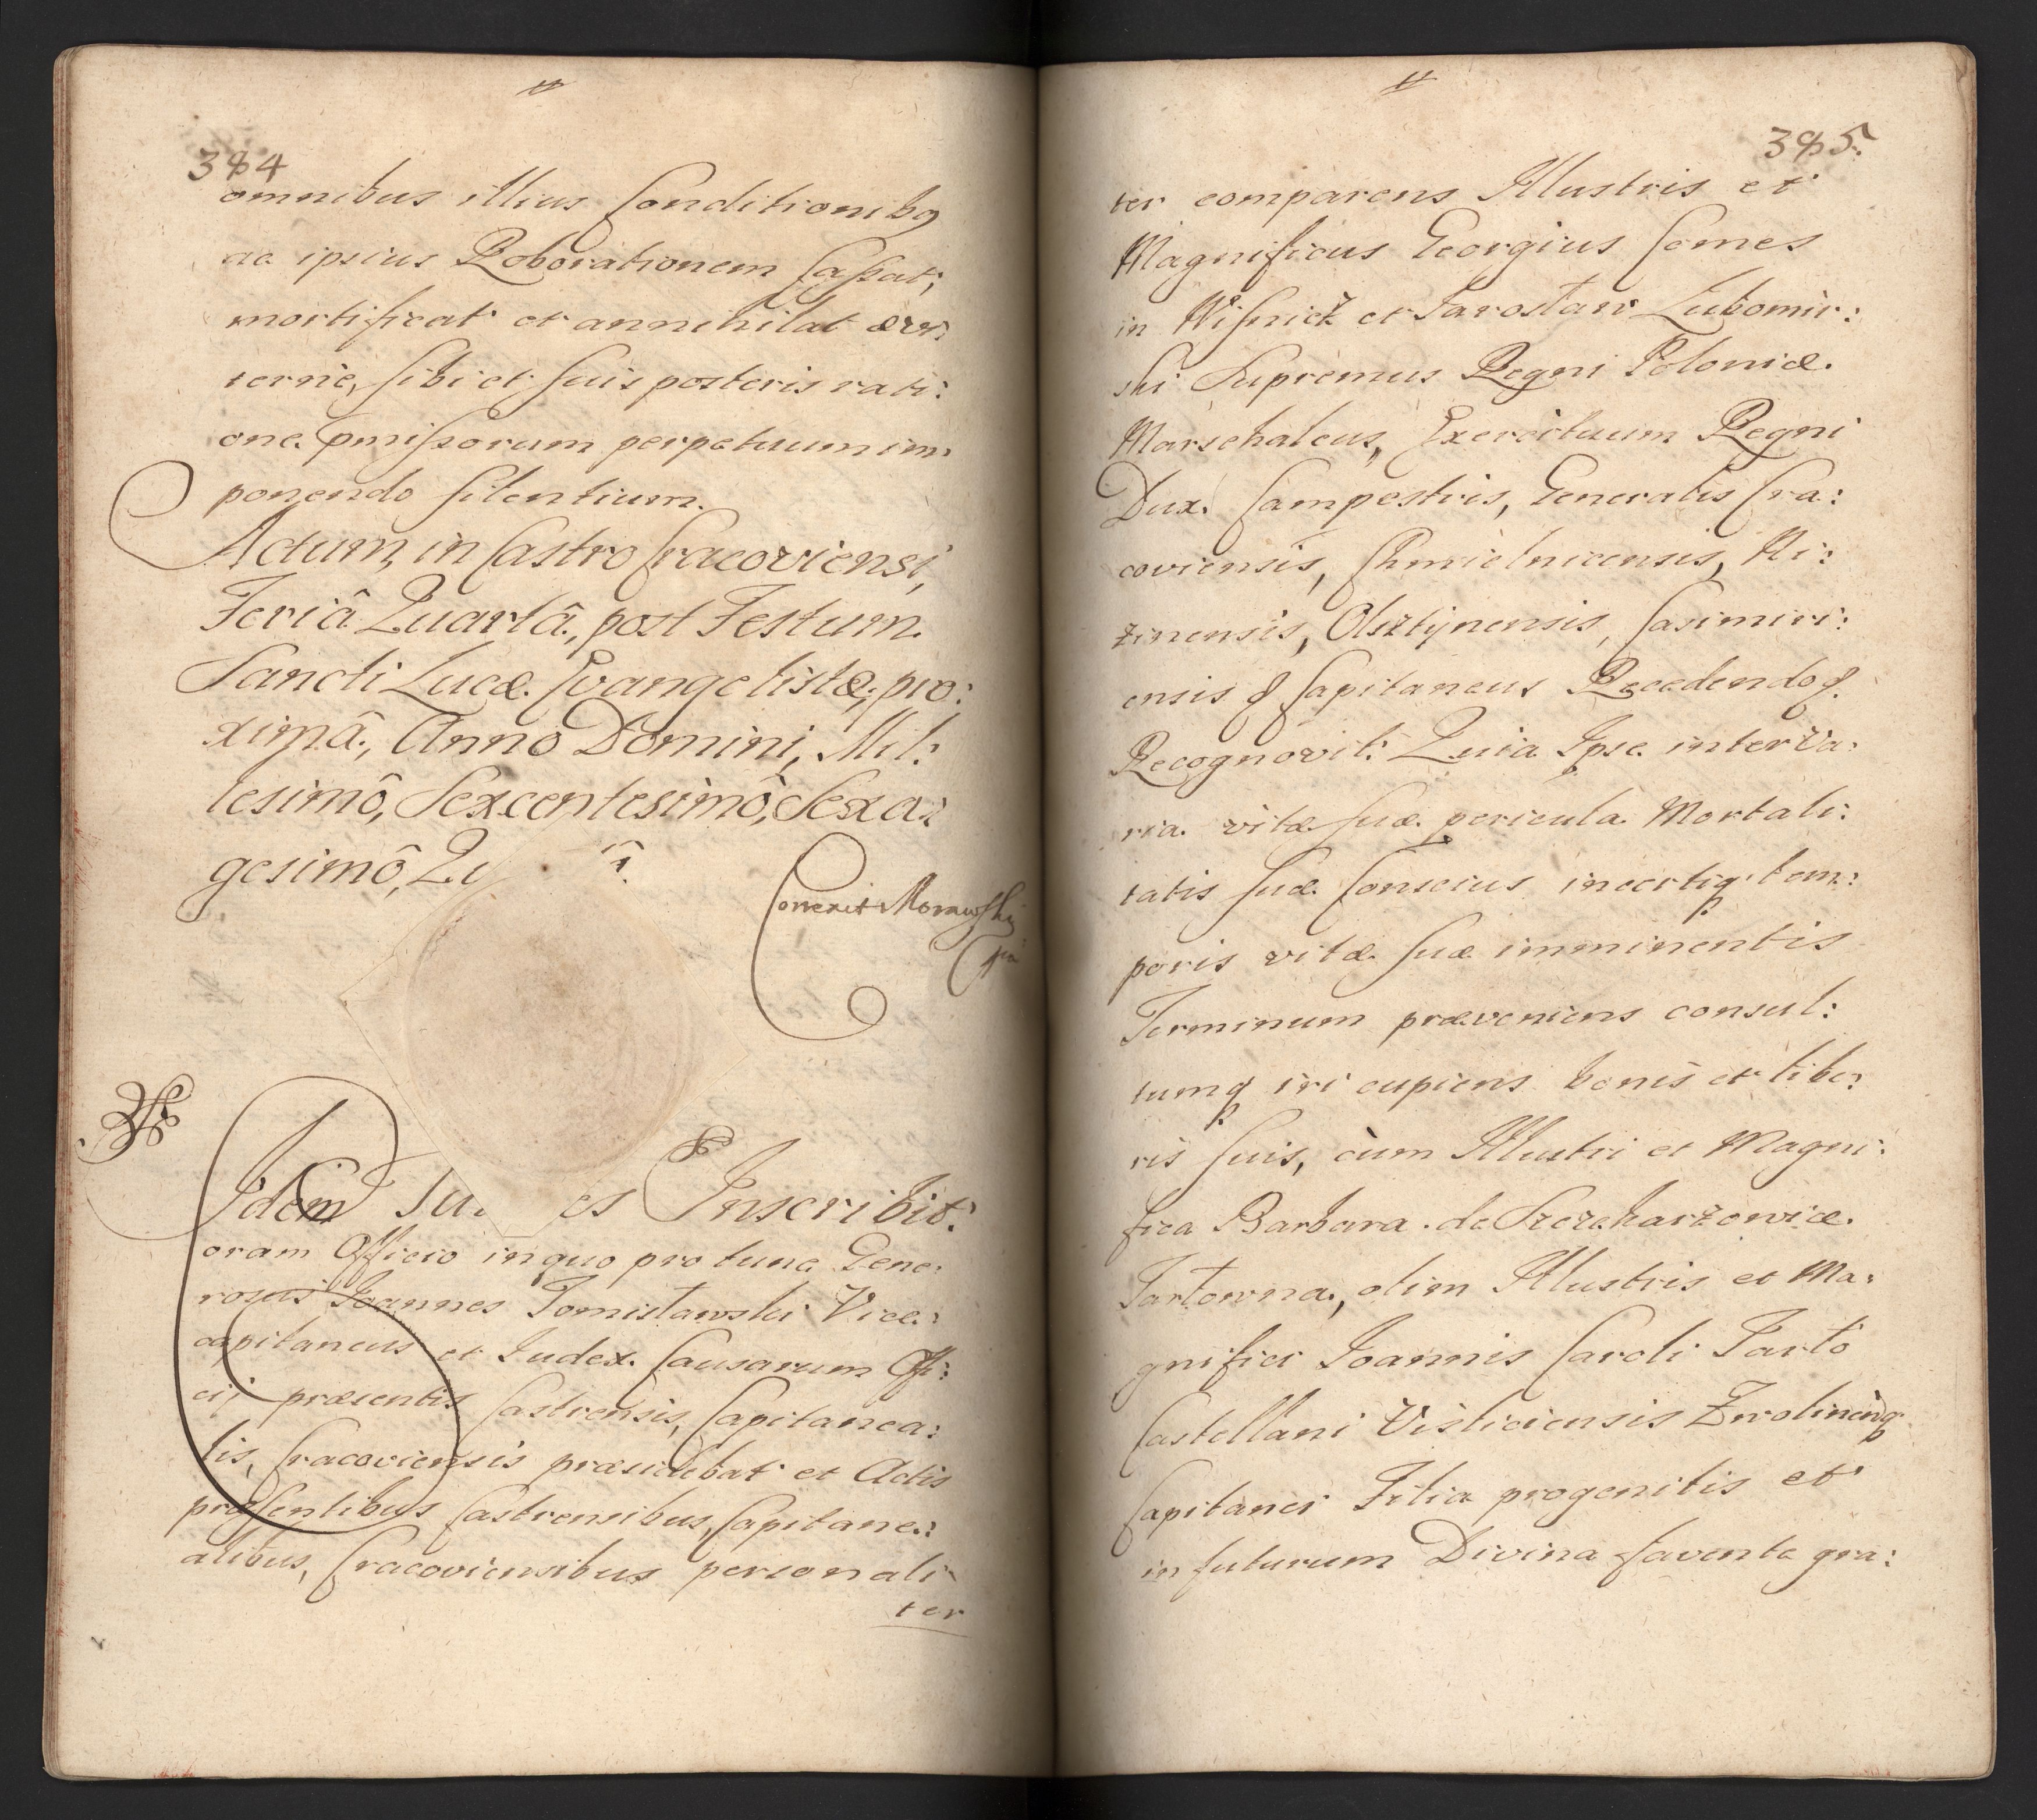 384
omnibus illius Conditionibq
ac ipsius Roborationem Cassat,
mortificat et annihilat ævi:
ternè, sibi et suis posteris rati:
one pmissorum perpetuum im:
ponendo silentium.
Actum, in Castro Cracoviensi,
Feriâ Quartâ, post Festum
Sancti Lucæ Evangelistæ, pro:
ximâ, Anno Domini, Mil:
lesimô, Sexcentesimô, Sexa:
gesimô, Qu
Correxit Morawski
Idem Su es Inscribit.
oram Officio in quo pro tunc Gene:
rosus Joannes Tomisławski Vice:
capitaneus et Judex Causarum Offi:
cij præsentis Castrensis, Capitanea:
lis, Cracoviensis præsidebat et Actis
præsentibus Castrensibus, Capitane:
alibus, Cracoviensibus personali
ter
385
ter comparens Illustris et
Magnificus Georgius Comes
in Wiśnicz et Jarosław Lubomir:
ski Supremus Regni Poloniæ
Marschalcus, Exercituum Regni
Dux Campestris, Generalis Cra:
coviensis, Chmielnicensis, Ni:
zinensis, Olsztÿnensis, Casimiri:
ensis & Capitaneus Recedendo &
Recognovit: Quia Ipse inter Va:
ria vitæ suæ pericula Mortali:
tatis suæ Conscius incertiq tem:
poris vitæ suæ imminentis
Terminum præveniens consul:
tumq iri cupiens bonis et libe:
ris suis, cùm Illustri et Magni:
fica Barbara de Szczekarzowice
Tarłowna, olim Illustris et Ma:
gnifici Joannis Caroli Tarło
Castellani Visliciensis Zwolinenq
Capitanei Filia progenitis et
in futurum Divina favente gra: